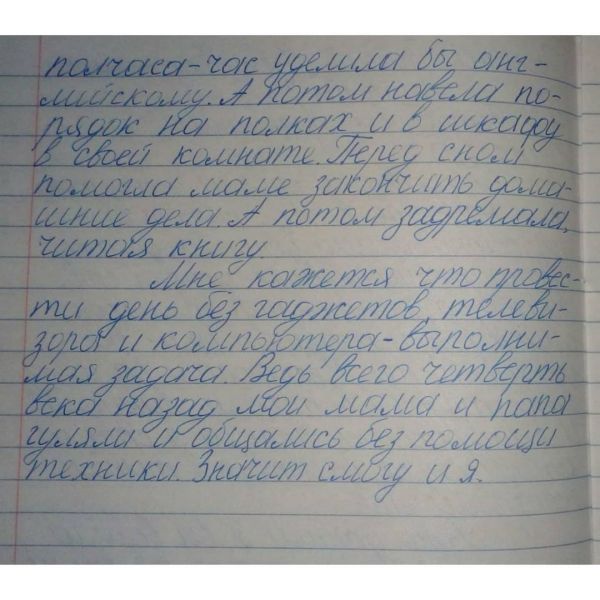 полчаса-час уделила бы анг-
лийскому. А потом навела по-
рядок на полках и в шкафу
в своей комнате. Перед сном
помогла маме закончить дома-
шние дела. А потом задремала,
читая книгу.
Мне кажется что провес-
ти день без гаджетов, телеви-
зора и компьютера-выполни-
мая задача. Ведь всего четверть
века назад мои мама и папа
гуляли и общались без помощи
техники. Значит смогу и я.